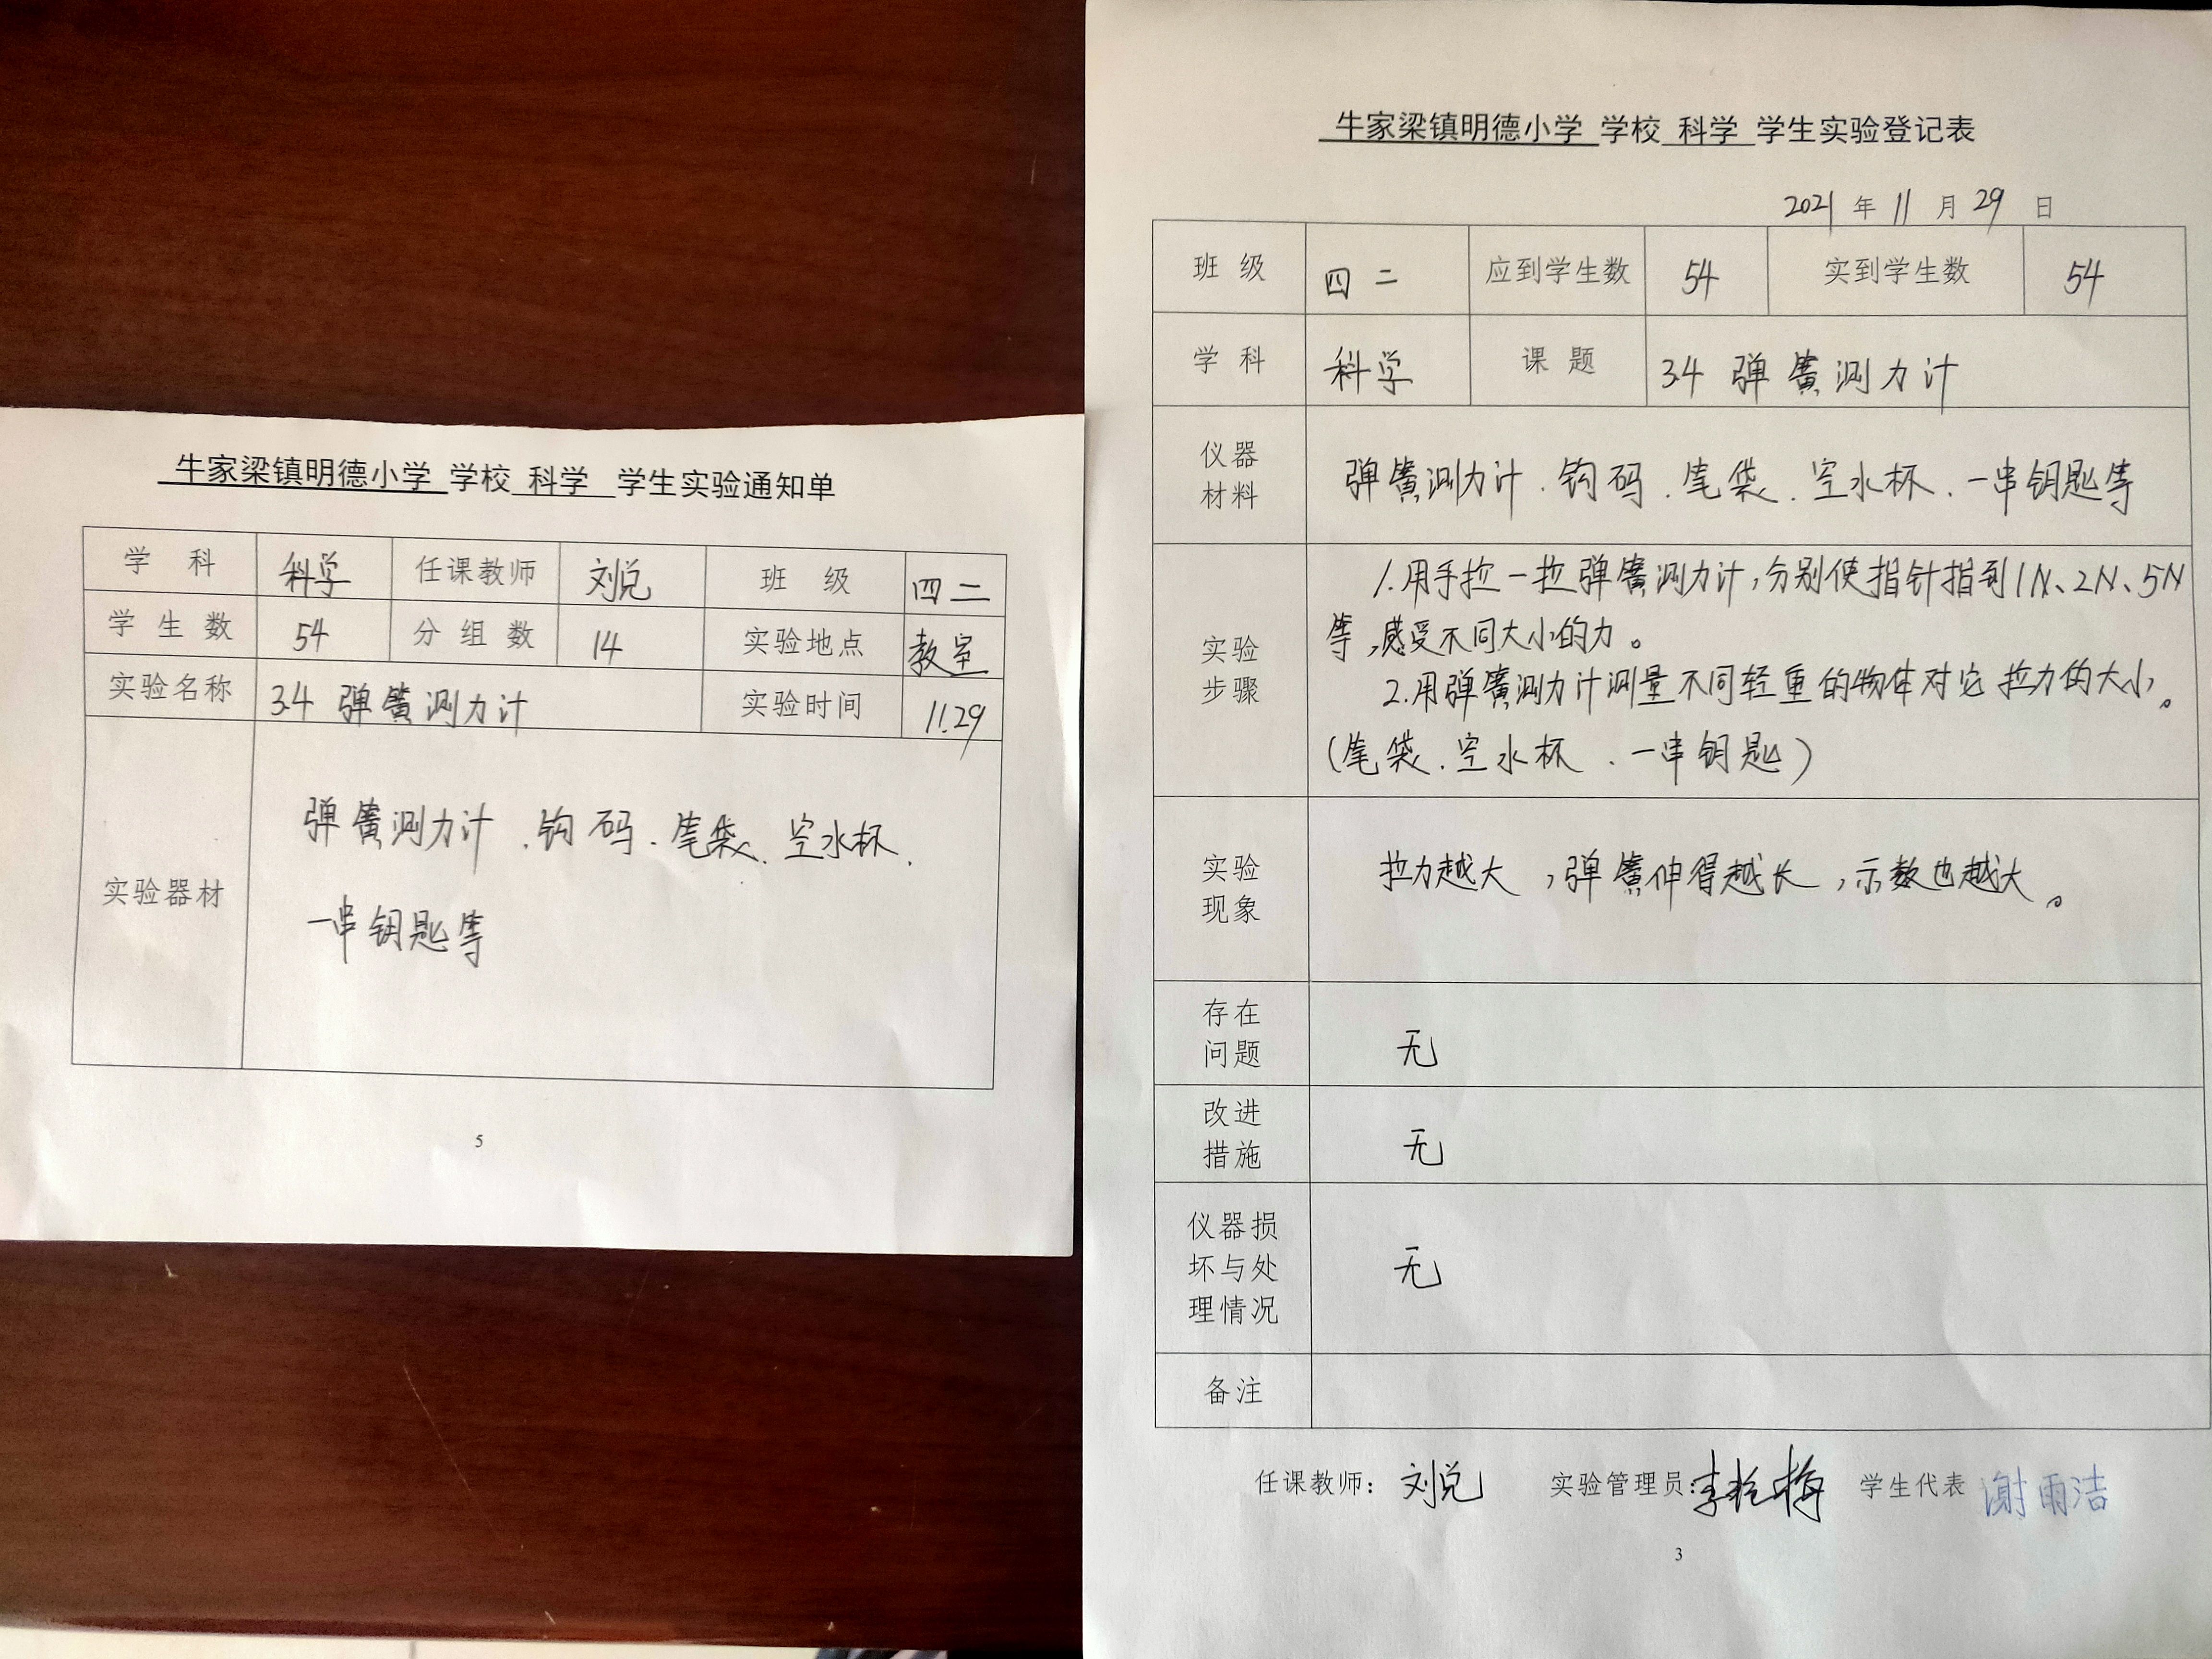 牛家梁镇明德小学 学校 科学 学生实验通知单
学 科 科学 任课教师 刘说 班 级 四二
学生数 54 分组数 14 实验地点 教室
实验名称 3.4 弹簧测力计 实验时间 11.29
实验器材
弹簧测力计、钩码、笔袋、空水杯、
一串钥匙等
5
牛家梁镇明德小学 学校 科学 学生实验登记表
2021 年 11 月 29 日
班 级 四二 应到学生数 54 实到学生数 54
学 科 科学 课 题 3.4 弹簧测力计
仪器
材料
弹簧测力计、钩码、笔袋、空水杯、一串钥匙等
实验
步骤
1.用手拉一拉弹簧测力计,分别使指针指到1N、2N、5N
等,感受不同大小的力。
2.用弹簧测力计测量不同轻重的物体对它拉力的大小。
(笔袋、空水杯、一串钥匙)
实验
现象
拉力越大,弹簧伸得越长,示数也越大。
存在
问题
无
改进
措施
无
仪器损
坏与处
理情况
无
备注
任课教师: 刘说 实验管理员: 学生代表 谢雨洁
3